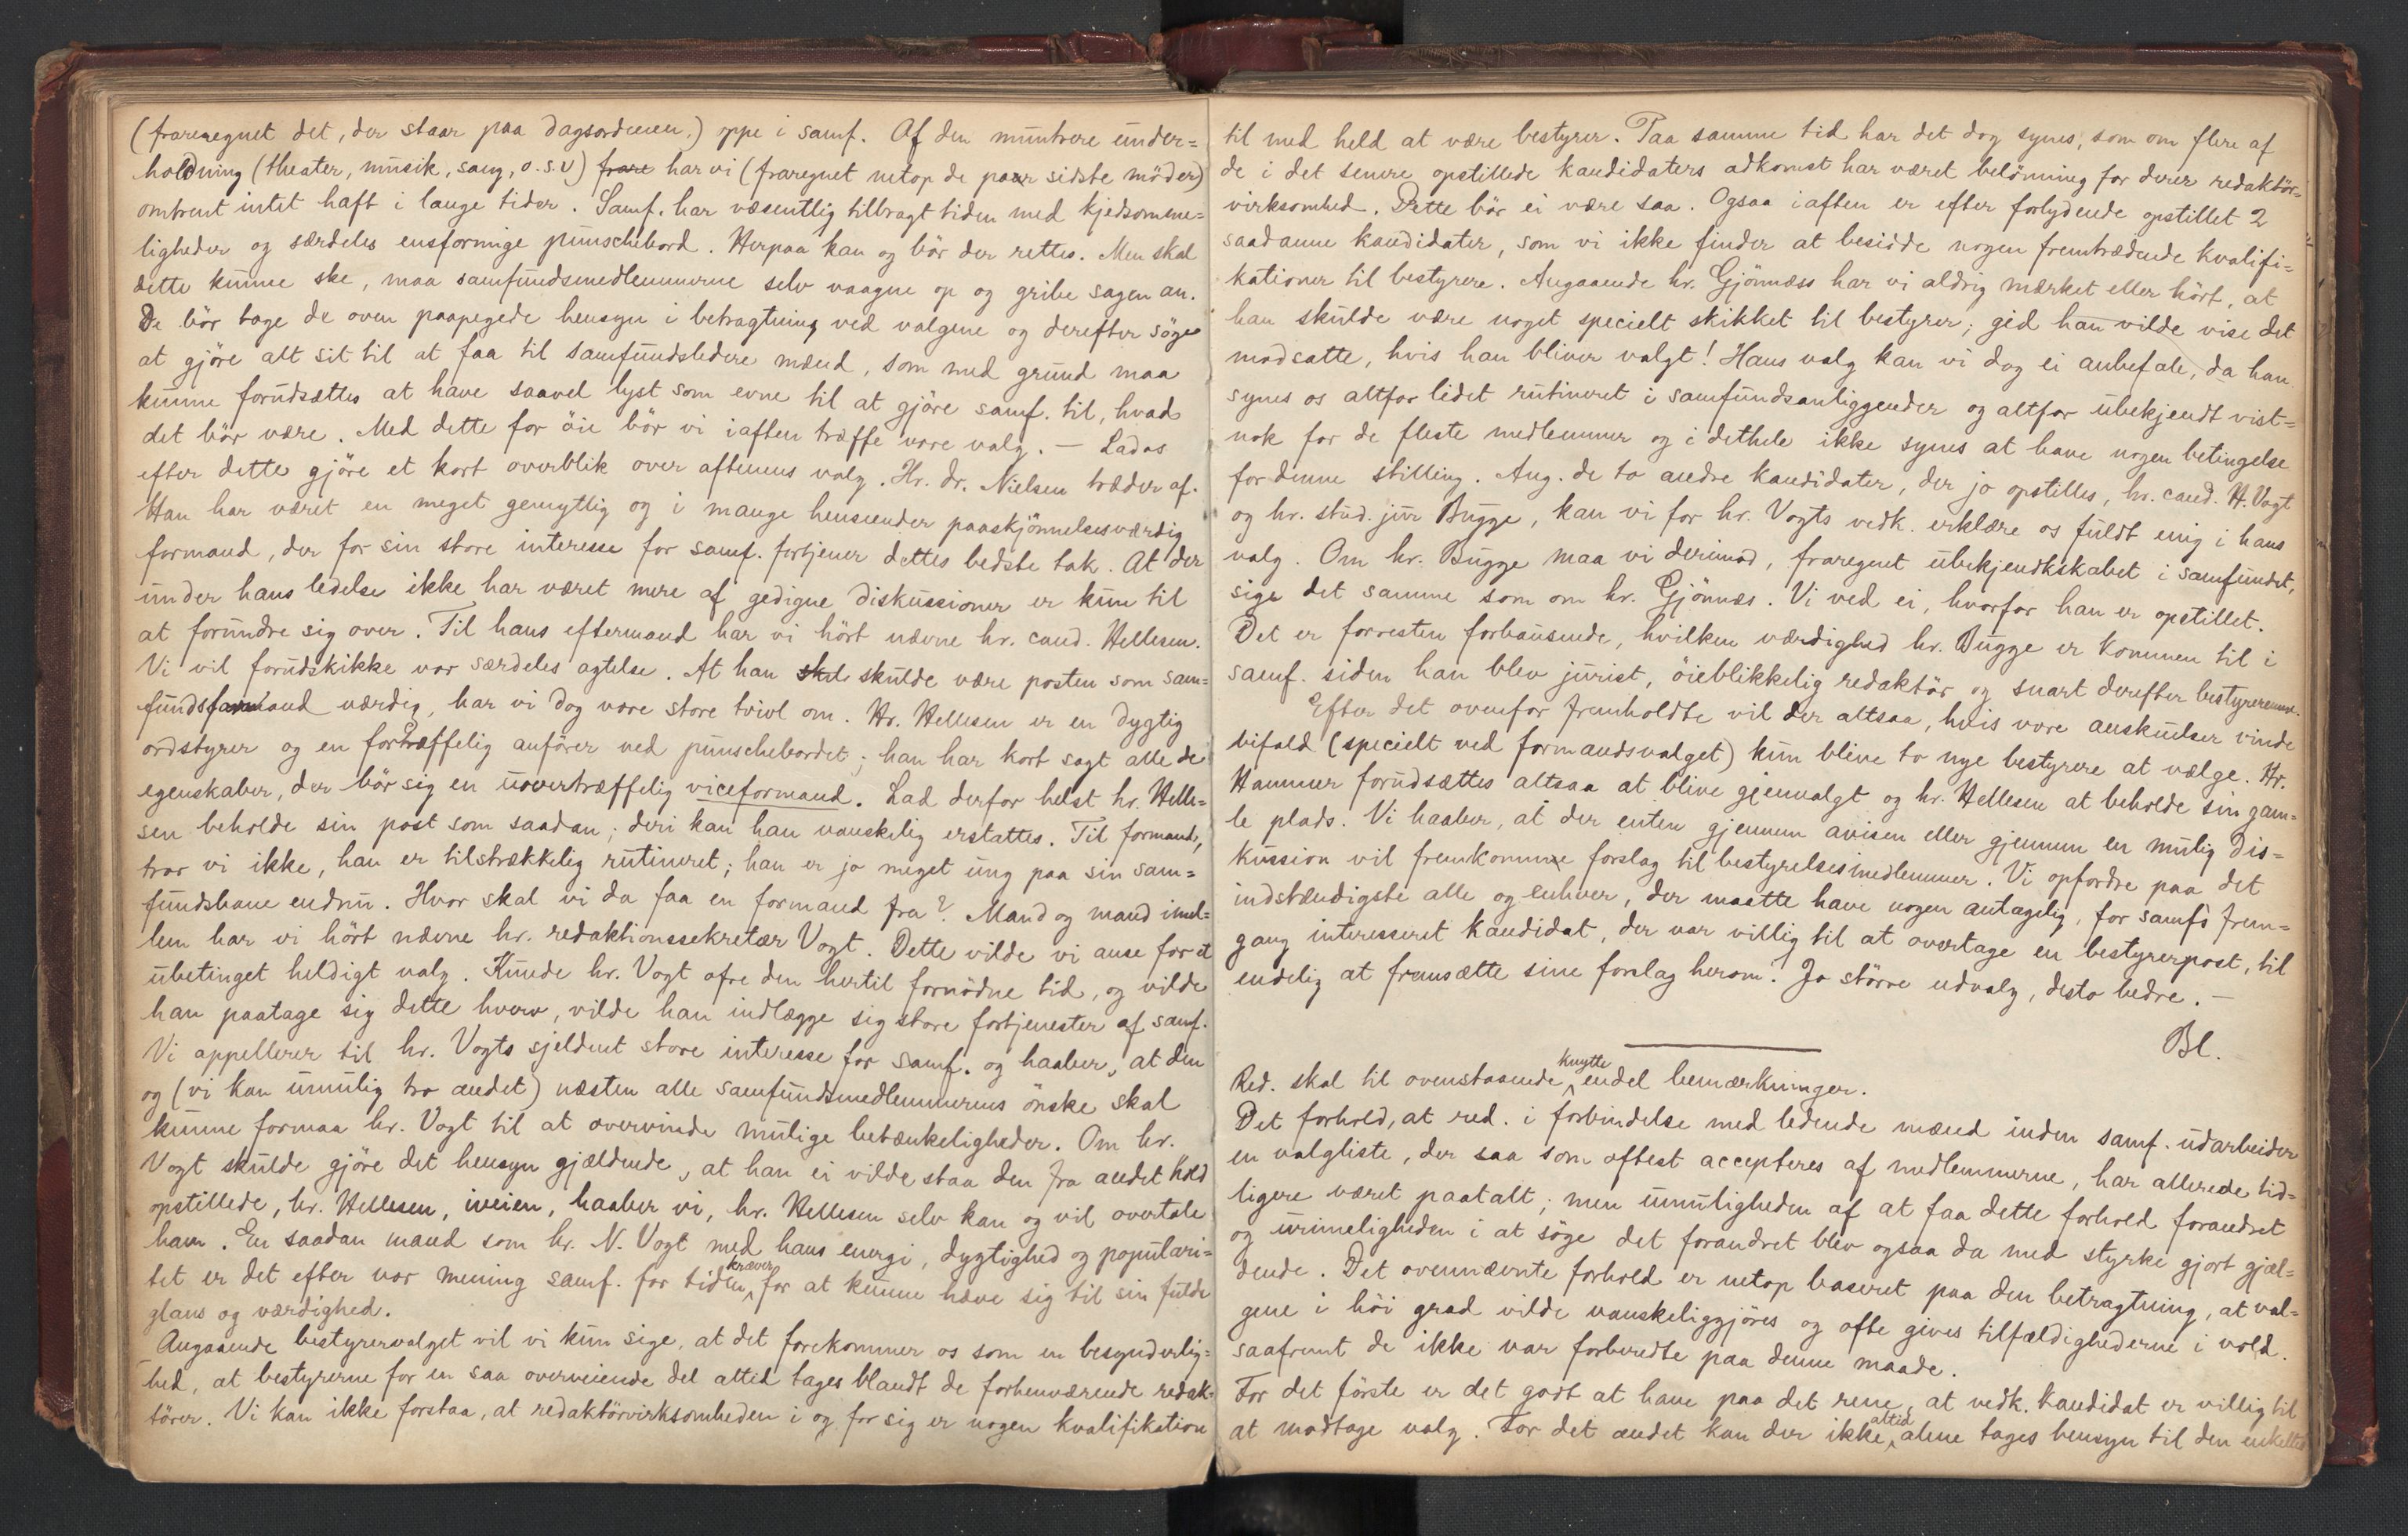 (fraregnet det, der staar paa dagsordenen,) oppe i samf. Af den muntrere under=
holdning (theater, musik, sang, o.s.v) frare har vi (fraregnet netop de paar sidste möder)
omtrent intet haft i lange tider. Samf. har væsentlig tilbragt tiden med kjedsomme=
ligheder og særdeles ensformige punschebord. Herpaa kan og bör der rettes. Men skal
dette kunne ske, maa samfundsmedlemmerne selv vaagne op og gribe sagen an.
De bör tage de oven paapegede hensyn i betragtning ved valgene og derefter söge
at gjöre alt sit til at faa til samfundsledere mænd, som med grund maa
kunne forudsættes at have saavel lyst som evne til at gjöre samf. til, hvad
det bör være. Med dette for öie bör vi iaften træffe vore valg. — Lad os
efter dette gjöre et kort overblik over aftenens valg. Hr. dr. Nielsen træder af.
Han har været en meget gemytlig og i mange henseender paaskjönnelsesværdig
formand, der for sin store interesse for samf. fortjener dettes bedste tak. At der
under hans ledelse ikke har været mere af gedigne diskussioner er kun til
at forundre sig over. Til hans eftermand har vi hört nævne hr. cand. Hellesen.
Vi vil forudskikke vor særdeles agtelse. At han skul skulde være posten som sam=
fundsformand værdig, har vi dog vore store tvivl om. Hr. Hellesen er en dygtig
ordstyrer og en fortræffelig anförer ved punschebordet; han har kort sagt alle de
egenskaber, der bör sig en uovertræffelig viceformand. Lad derfor helst hr. Helle=
sen beholde sin post som saadan; deri kan han vanskelig erstattes. Til formand,
tror vi ikke, han er tilstrækkelig rutineret; han er jo meget ung paa sin sam=
fundsbane endnu. Hvor skal vi da faa en formand fra? Mand og mand imel=
lem har vi hört nævne hr. redaktionssekretær Vogt. Dette vilde vi anse for et
ubetinget heldigt valg. Kunde hr. Vogt ofre den hertil fornödne tid, og vilde
han paatage sig dette hverv, vilde han indlægge sig store fortjenester af samf.
Vi appellerer til hr. Vogts sjeldent store interesse for samf. og haaber, at den
og (vi kan umulig tro andet) næsten alle samfundsmedlemmernes önske skal
kunne formaa hr. Vogt til at overvinde mulige betænkeligheder. Om hr.
Vogt skulde gjöre det hensyn gjældende, at han ei vilde staa den fra andet hold
opstillede, hr. Hellesen, iveien, haaber vi, hr. Hellesen selv kan og vil overtale
ham. En saadan mand som hr. N. Vogt med hans energi, dygtighed og populari=
tet er det efter vor mening samf. for tiden kræver for at kunne hæve sig til sin fulde
glans og værdighed.
Angaaende bestyrervalget vil vi kun sige, at det forekommer os som en besynderlig=
hed, at bestyrerne for en saa overveiende del altid tages blandt de forhenværende redak=
törer. Vi kan ikke forstaa, at redaktörvirksomheden i og for sig er nogen kvalifikation
til med held at være bestyrer. Paa samme tid har det dog synes, som om flere af
de i det senere opstillede kandidaters adkomst har været belönning for deres redaktör=
virksomhed. Dette bör ei være saa. Ogsaa iaften er efter forlydende opstillet 2
saadanne kandidater, som vi ikke finder at besidde nogen fremtrædende kvalifi=
kationer til bestyrere. Angaaende hr. Gjönnæss har vi aldrig mærket eller hört, at
han skulde være noget specielt skikket til bestyrer; gid han vilde vise det
modsatte, hvis han bliver valgt! Hans valg kan vi dog ei anbefale, da han
synes os altfor lidet rutineret i samfundsanliggender og altfor ubekjendt vist=
nok for de fleste medlemmer og i dethele ikke synes at have nogen betingelse
for denne stilling. Ang. de to andre kandidater, der jo opstilles, hr. cand. H. Vogt
og hr. stud. jur Bugge, kan vi for hr. Vogts vedk. erklære os fuldt enig i hans
valg. Om hr. Bugge maa vi derimod, fraregnet ubekjendtskabet i samfundet,
sige det samme som om hr. Gjönnæs. Vi ved ei, hvorfor han er opstillet.
Det er forresten forbausende, hvilken værdighed hr. Bugge er kommen til i
samf. siden han blev jurist, öieblikkelig redaktör og snart derefter bestyreremne.
Efter det ovenfor fremholdte vil der altsaa, hvis vore anskuelser vinde
bifald (specielt ved formandsvalget) kun blive to nye bestyrere at vælge. Hr.
Hammer forudsættes altsaa at blive gjenvalgt og hr. Hellesen at beholde sin gam=
le plads. Vi haaber, at der enten gjennem avisen eller gjennem en mulig dis=
kussion vil fremkomme forslag til bestyrelsesmedlemmer. Vi opfordre paa det
indstændigste alle og enhver, der maatte have nogen antagelig, for samfs frem=
gang interesseret kandidat, der var villig til at overtage en bestyrerpost, til
endelig at fremsætte sine forslag herom. Jo större udvalg, desto bedre. —
Bl.
Red. skal til ovenstaaende knytte endel bemærkninger.
Det forhold, at red. i forbindelse med ledende mænd inden samf. udarbeider
en valgliste, der saa som oftest accepteres af medlemmerne, har allerede tid=
ligere været paatalt; men umuligheden af at faa dette forhold forandret
og urimeligheden i at söge det forandret blev ogsaa da med styrke gjort gjæl=
dende. Det ovennævnte forhold er netop baseret paa den betragtning, at val=
gene i höi grad vilde vanskeliggjöres og ofte gives tilfældighederne i vold.
saafremt de ikke var forberedte paa denne maade.
For det förste er det godt at have paa det rene, at vedk. kandidat er villig til
at modtage valg. For det andet kan der ikke altid alene tages hensyn til den enkeltes